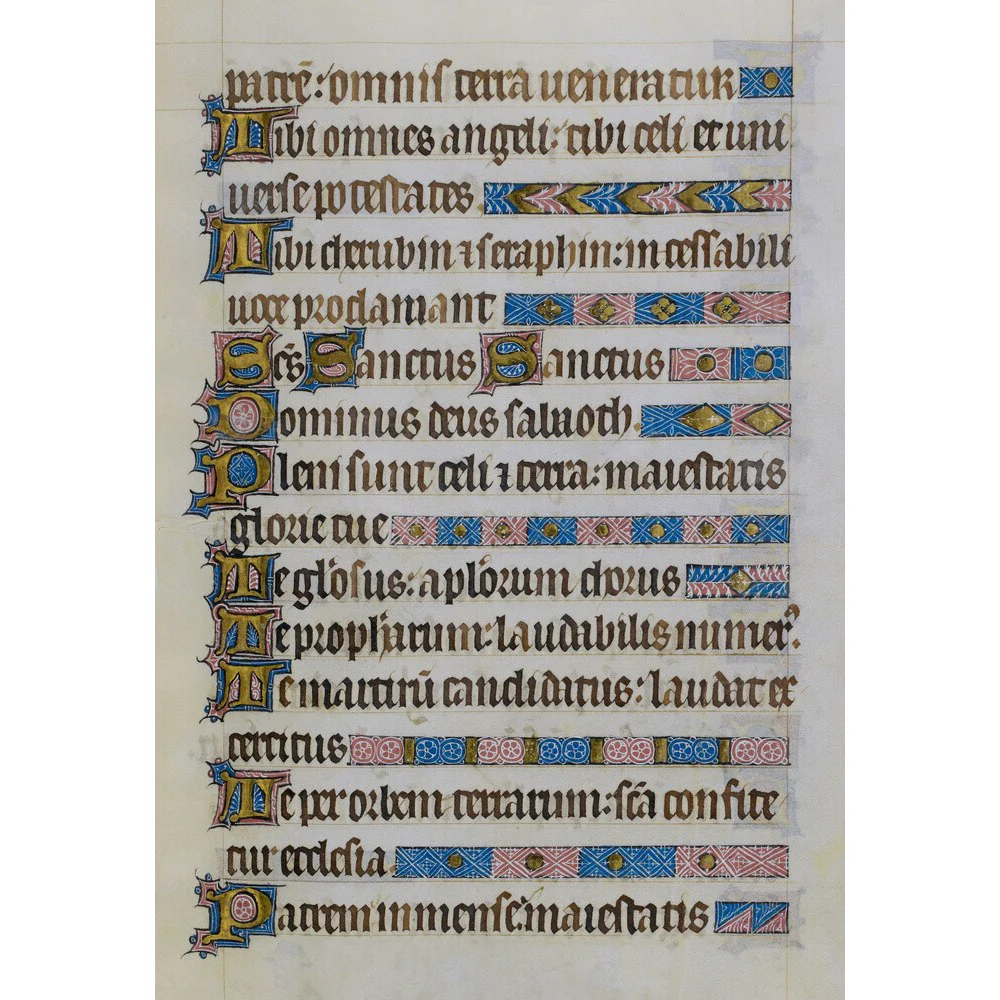 patrē: omnis terra ueneratur
Tibi omnes angeli: tibi celi et uni
uerse potestates
Tibi cherubin ⁊ seraphin: incessabili
uoce proclamant
Sc̄s Sanctus Sanctus
Dominus deus sabaoth.
Pleni sunt celi ⁊ terra: maiestatis
glorie tue
Te gl̄osus: apl̄orum chorus
Te proph̄arum: laudabilis numer᷒.
Te martirū candidatus: laudat ex
ercitus
Te per orbem terrarum: sc̄a confite
tur ecclesia
Patrem inmense: maiestatis